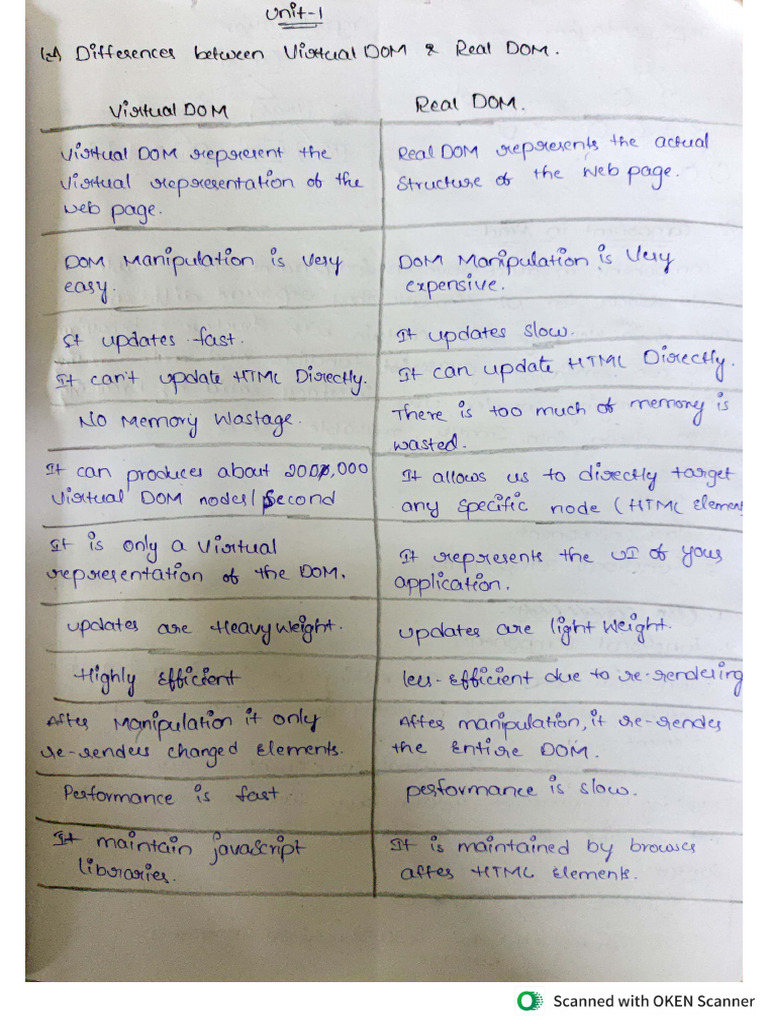 Unit-1
Differences between Virtual DOM & Real DOM.
Virtual DOM
Real DOM.
Virtual DOM represent the
virtual representation of the
web page.
Real DOM represents the actual
structure of the web page.
DOM Manipulation is very
easy.
DOM Manipulation is very
expensive.
It updates fast.
It updates slow.
It can't update HTML Directly.
It can update HTML Directly.
No Memory Wastage.
There is too much of memory is
wasted.
It can produces about 200,000
Virtual DOM nodes/Second
It allows us to directly target
any specific node (HTML Element
It is only a virtual
representation of the DOM.
It represents the UI of your
application.
updates are Heavy weight.
updates are light weight.
Highly Efficient
less-Efficient due to re-rendering
After Manipulation it only
re-renders changed Elements.
After manipulation, it re-render
the Entire DOM.
Performance is fast.
performance is slow.
It maintain javascript
libraries.
It is maintained by browser
after HTML Elements.
Scanned with OKEN Scanner